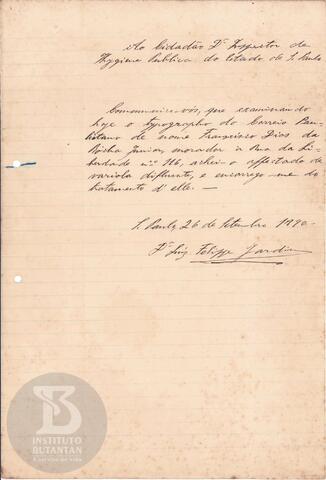 Ao Cidadão Dr Inspector da
Hygiene Publica do Estado de S. Paulo
Communico-vós, que examinando
hoje o typographo do Correio Pau-
listano de nome Francisco Dias da
Rocha Junior, morador à Rua da Li-
berdade nº 116, achei-o affectado de
variola diffluente, e encarrego-me do
tratamento d'elle. —
S. Paulo, 26 de Setembro 1890
Dr Luiz Felippe Jardim
INSTITUTO
BUTANTAN
A serviço da vida